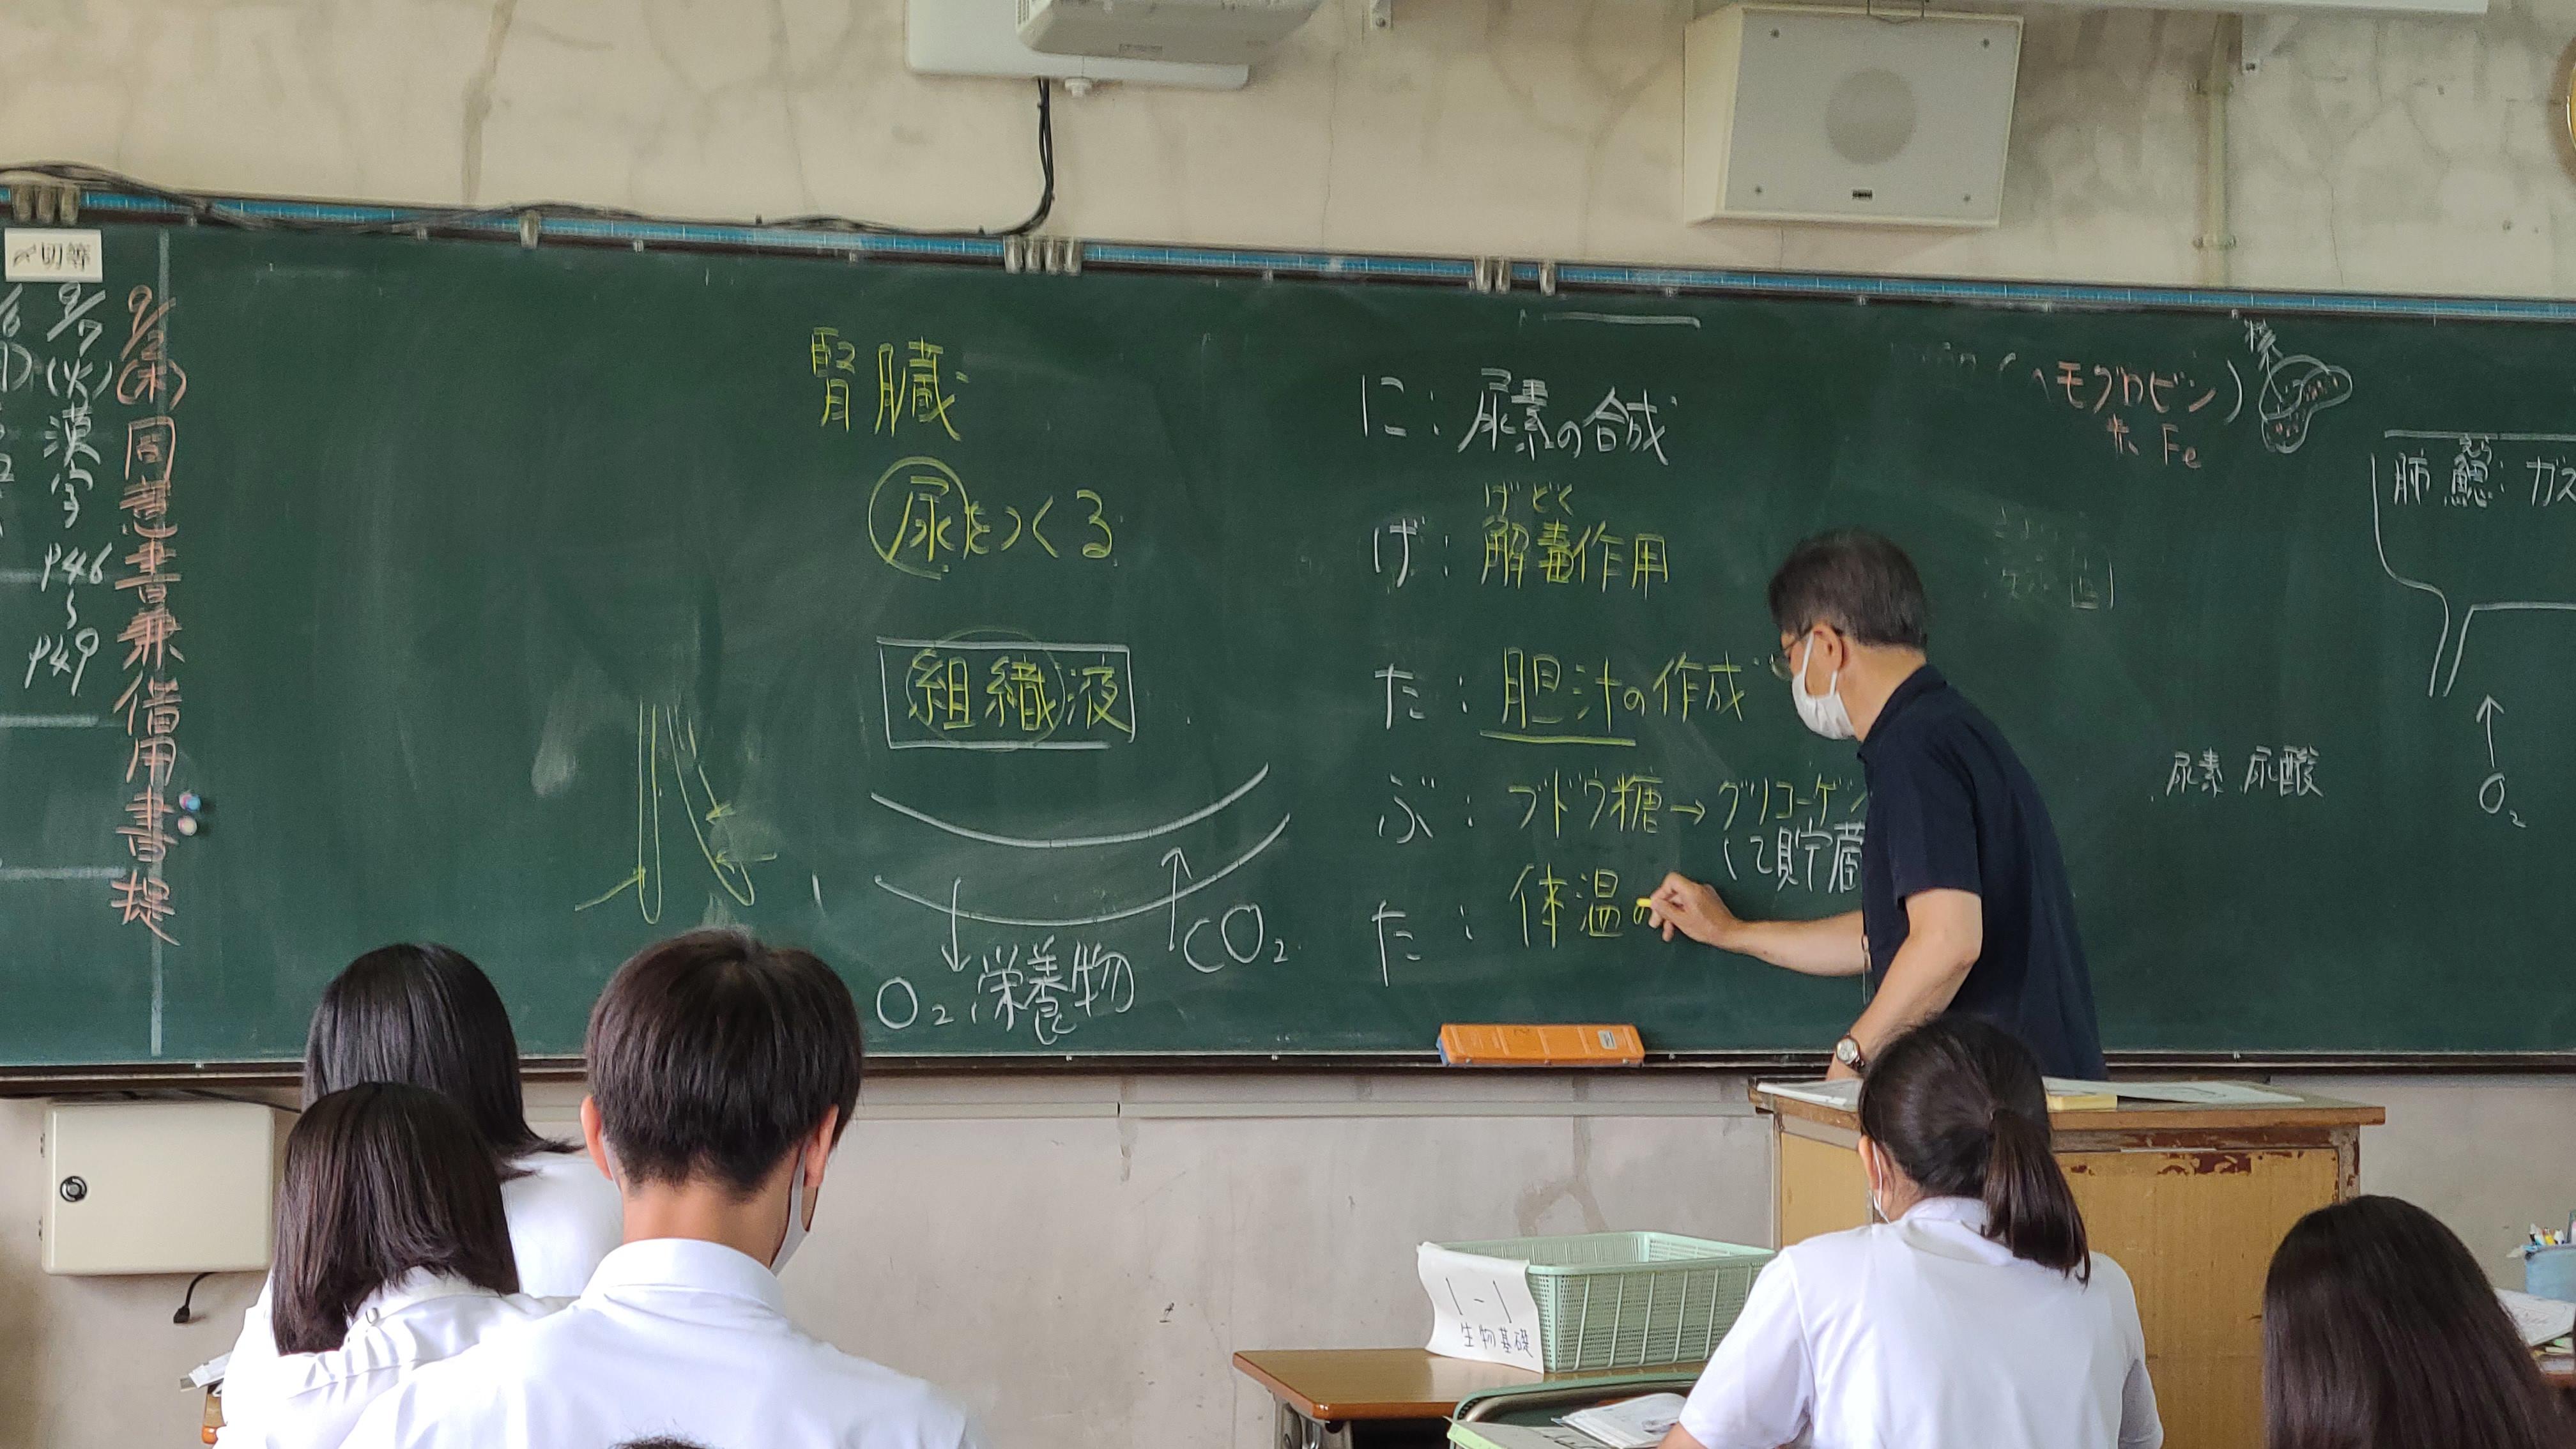 〆切等
9/7
(火)
漢字
p46
〜
p49
同意書兼借用書提
腎臓
尿をつくる
組織液
O₂ 栄養物
CO₂
に：尿素の合成
げどく
げ：解毒作用
た：胆汁の作成
ぶ：ブドウ糖→グリコーゲン
して貯蔵
た：体温の
(ヘモグロビン)
赤 Fe
核
肺 鰓：ガス
尿素 尿酸
O₂
1-1
生物基礎